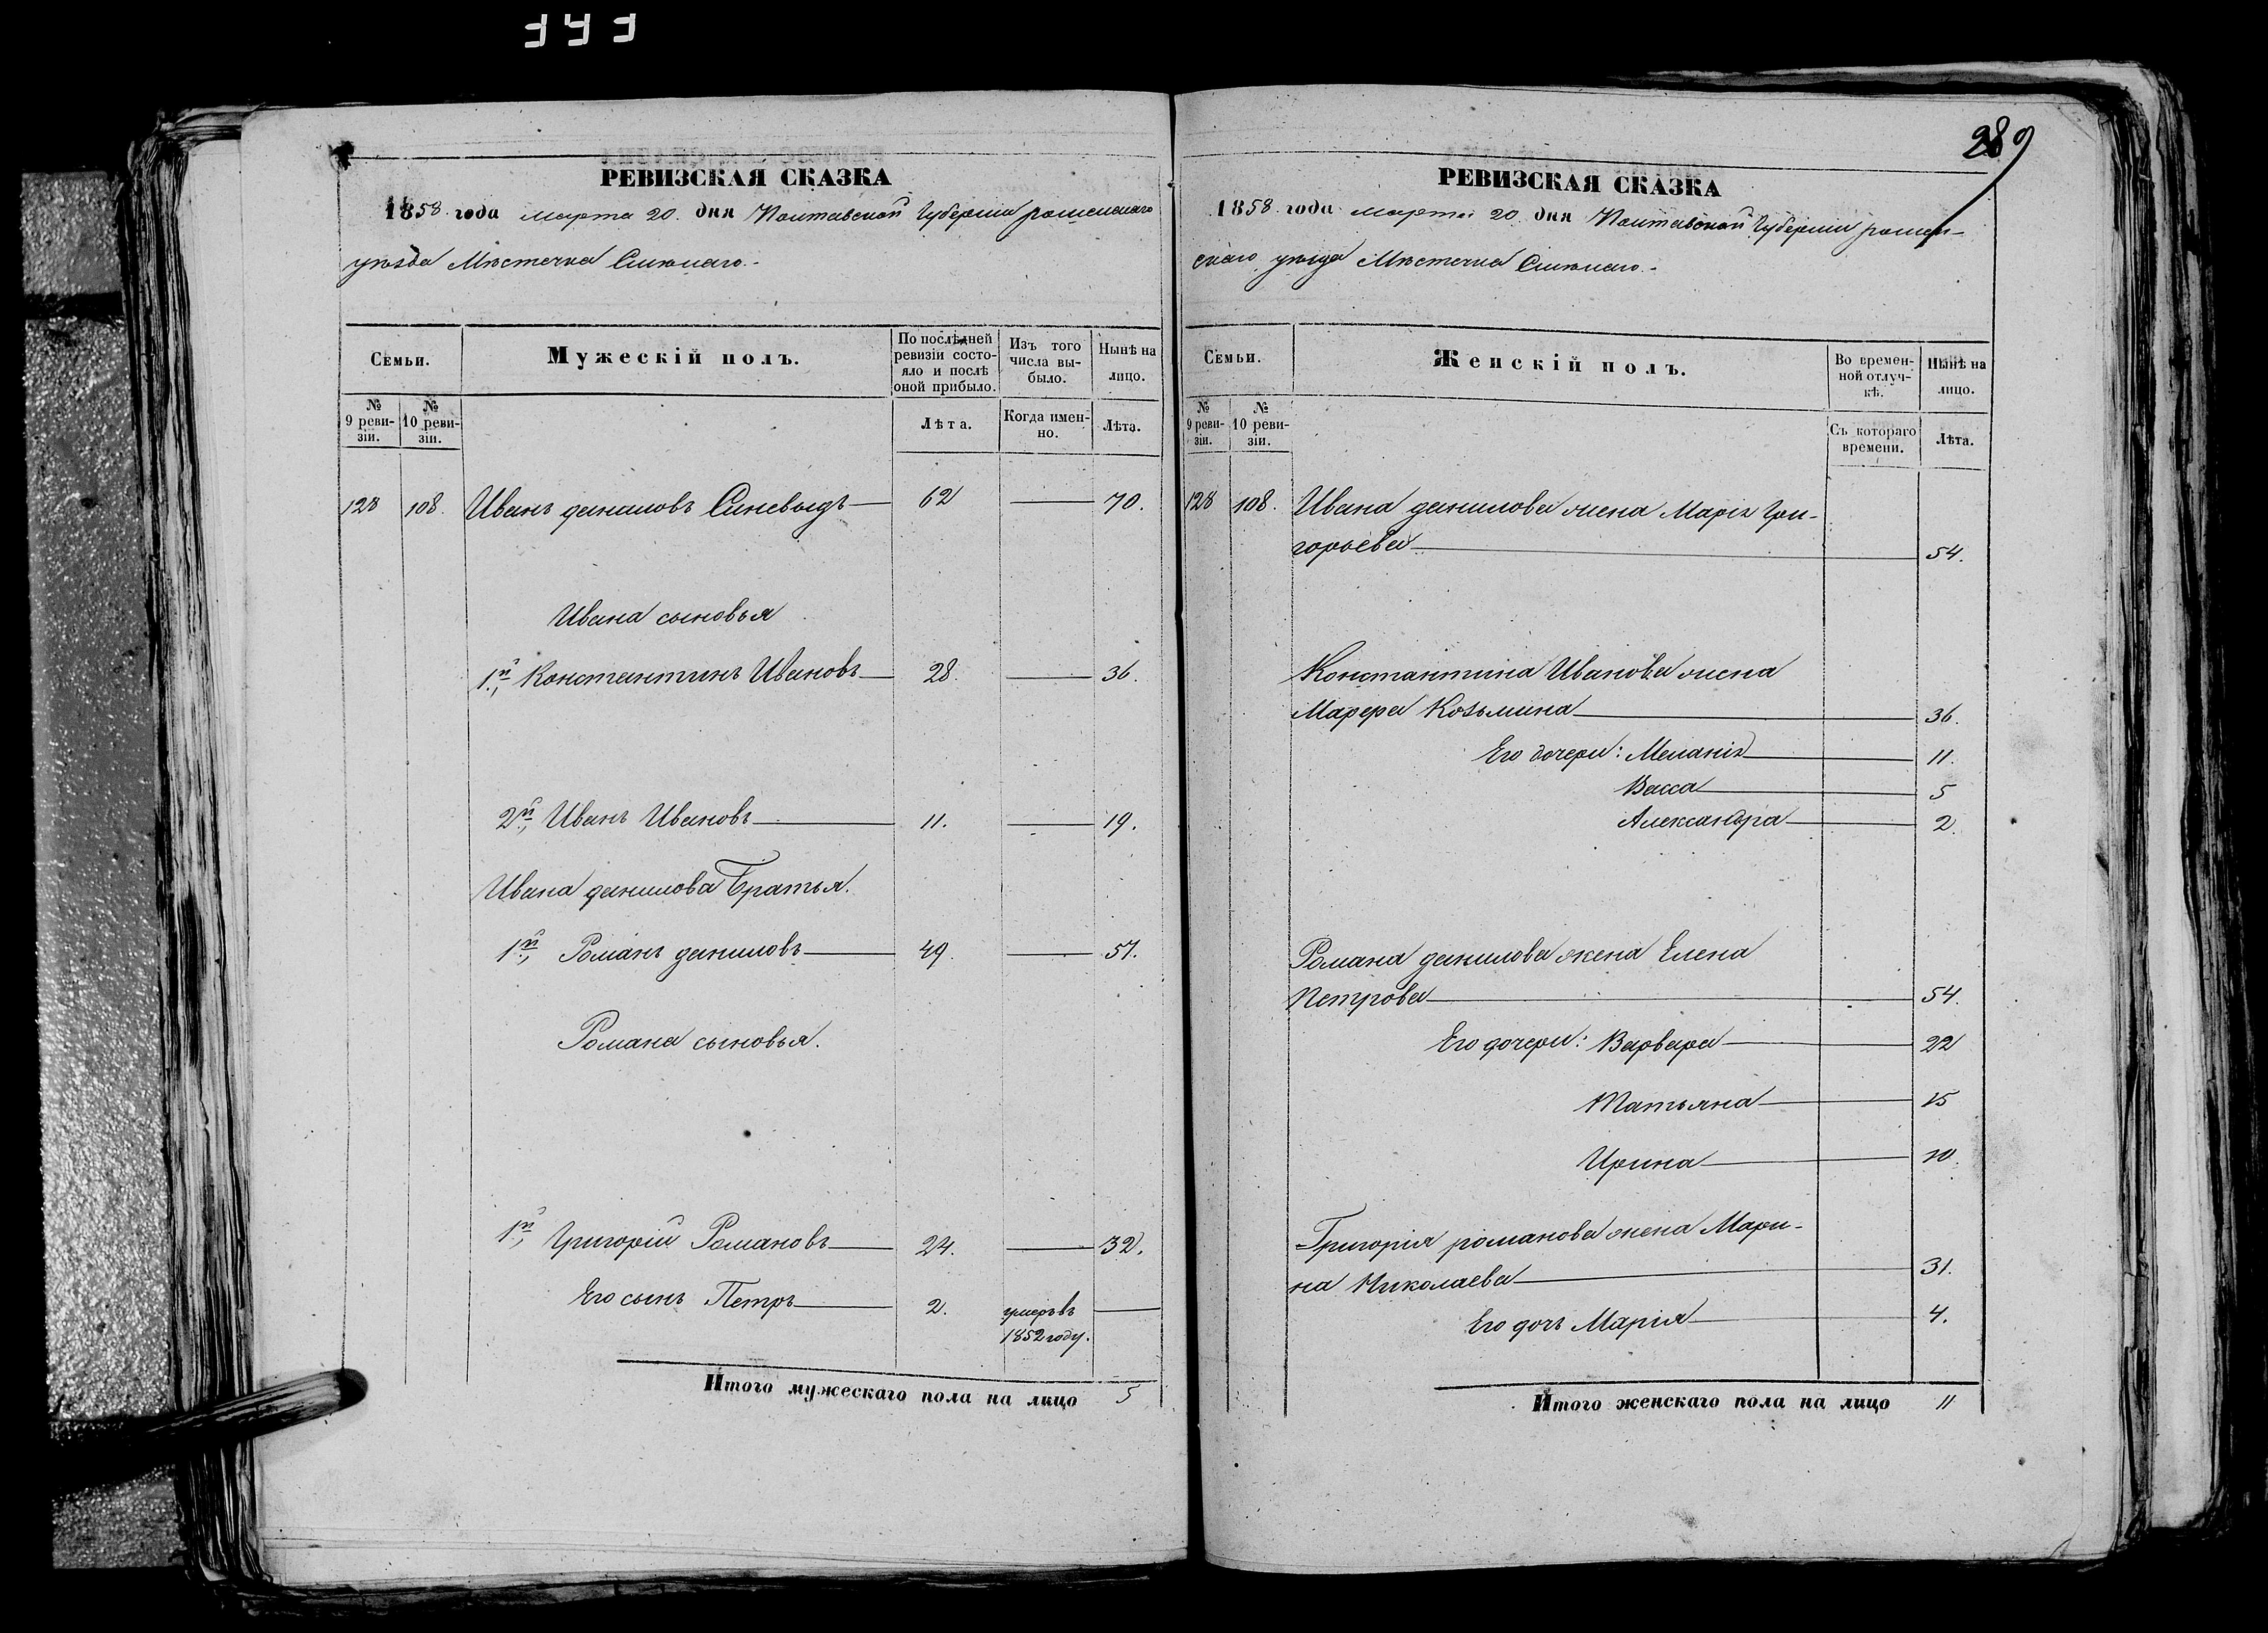 289
РЕВИЗСКАЯ СКАЗКА
1858 года марта 20. дня Полтавской Губерніи роменскаго
уѣзда Мѣстечка Смѣлаго.
Семьи.
Мужескій полъ.
По послѣдней ревизіи состояло и послѣ оной прибыло.
Изъ того числа выбыло.
Нынѣ на лицо.
№ 9 ревизіи.
№ 10 ревизіи.
Лѣта.
Когда именно.
Лѣта.
128 108. Иванъ даниловъ Синевыдъ 62 70.
Ивана сыновья
1.й Константинъ Ивановъ 28. 36.
2й, Иванъ Ивановъ 11. 19.
Ивана данилова Братья.
1й, Романъ даниловъ 49. 57.
Романа сыновья.
1й, Григорій Романовъ 24. 32.
Его сынъ Петръ 2. умеръ въ
1852 году.
Итого мужескаго пола на лицо 5
РЕВИЗСКАЯ СКАЗКА
1858 года марта 20 дня Полтавской Губерніи ромен-
скаго уѣзда Мѣстечка Смѣлаго.
Семьи.
Женскій полъ.
Во времен-
ной отлуч-
кѣ.
Нынѣ на
лицо.
№ 9 ревизіи.
№ 10 ревизіи.
Съ котораго
времени.
Лѣта.
128 108. Ивана данилова жена Марія Гри-
горьева 54.
Константина Иванова жена
Марфа Козьмина 36.
Его дочери: Меланія 11.
Васса 5
Александра 2
Романа данилова жена Елена
Петрова 54.
Его дочери: Варвара 22
Татьяна 15
Ирина 10.
Григорія романова жена Мари-
на Николаева 31.
Его дочь Марія 4.
Итого женскаго пола на лицо 11